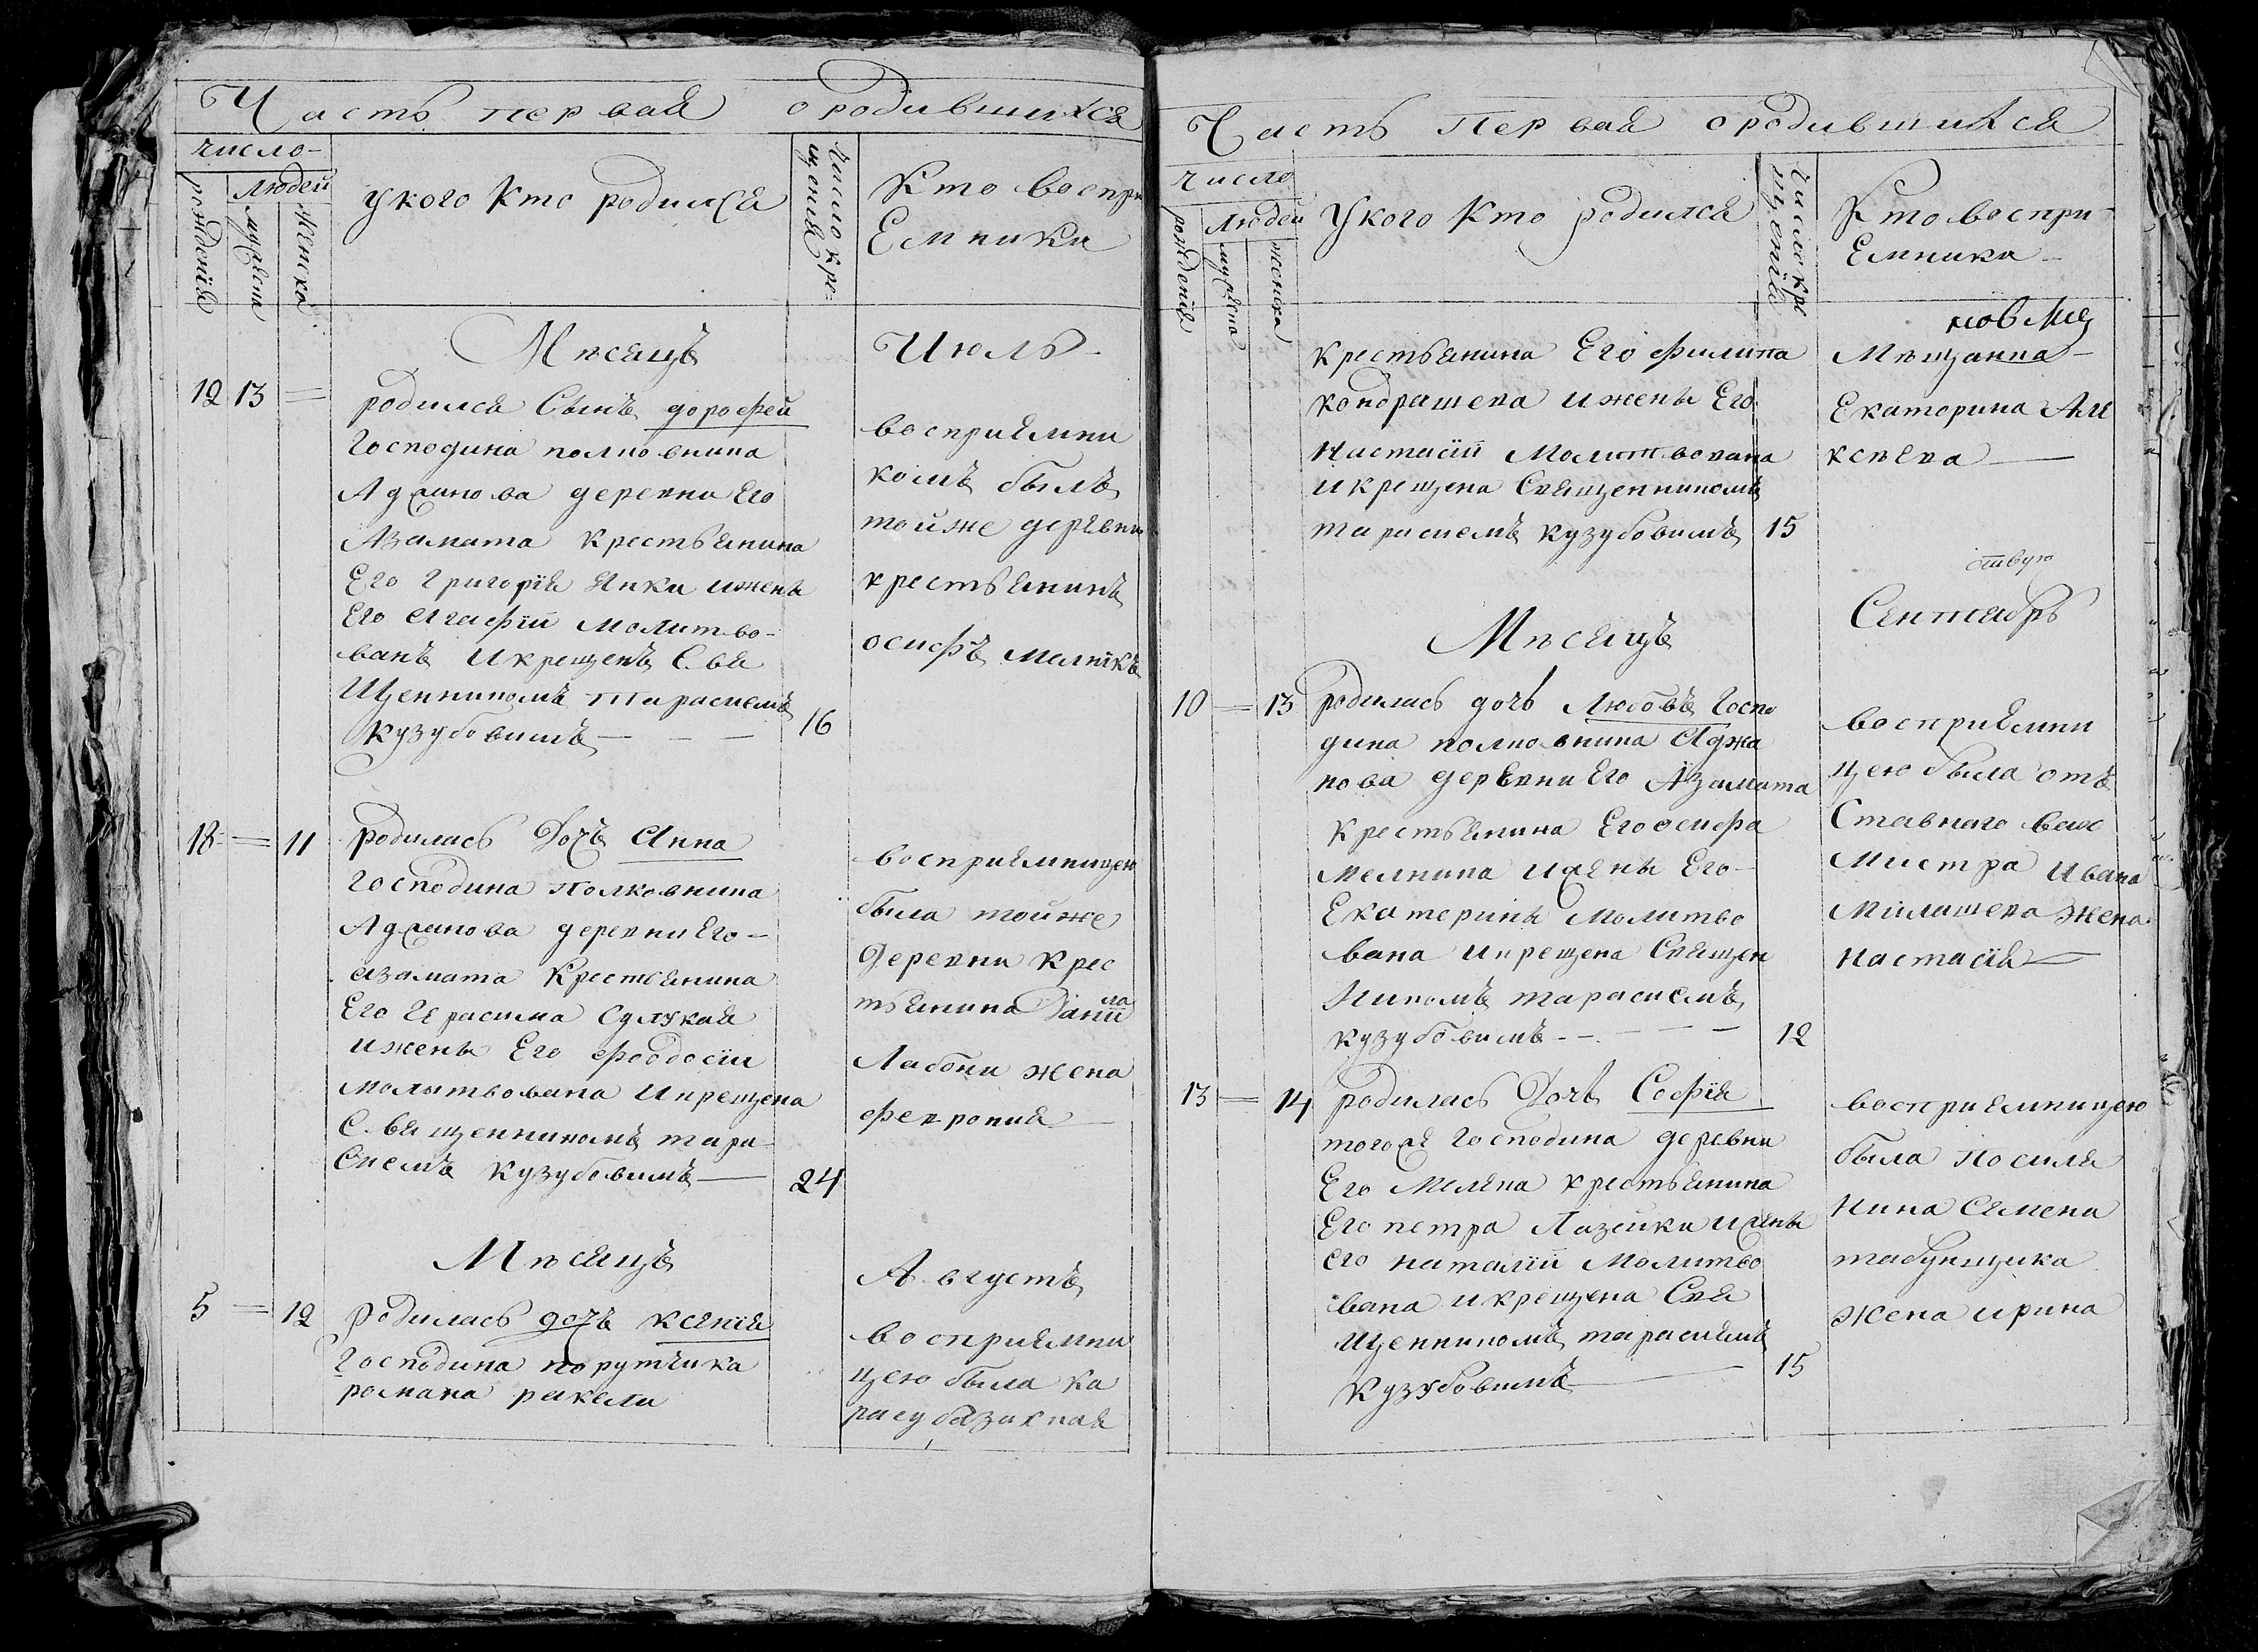 Часть первая о родившихся
число
рожденїя
людей
мужеска
женска
у кого кто родился
число кре-
щенїя
Кто воспри
Емники
Мѣсяцъ Июль
12 13 = родился Сынъ дорофей
Господина полковника
Аджанова деревни Его
Азамата крестьянина
Его Григорїя Янки и жены
Его Агафїи молитво-
ванъ и крещенъ Свя
щенникомъ Тарасиемъ
Кузубовимъ 16
восприямни
комъ былъ
той же деревни
крестьянинъ
осифъ мелнїкъ
18 = 11 родилась Дочъ Анна
Господина Полковника
Аджанова деревни Его
азамата Крестьянина
Его Герасима Сдлукая
и жены Его феодосїи
молытвована и крещена
Священникомъ тара
Сиемъ кузубовимъ 24
восприямницею
была той же
деревни крес
тьянина Данїи
ла
Лабони жена
феврония
Мѣсяцъ Августъ
5 = 12 родилась дочъ ксенїя
Господина порутчика
романа ракели
восприямни
цею была ка
расубазакная
Часть Первая о родившихся
число
рожденїя
людей
мужеска
женска
У кого кто родился
Число кре
щенїя
Кто воспри-
Емники
крестьянина Его филипа
кондрашева и жены Его
Настасїи Молитвована
и крещена Священникомъ
тарасиемъ кузубовимъ 15
Мѣщанка
Екатерина Але
ксѣева
ствую
Мѣсяцъ Сентябрь
10 = 13 родилась дочь Любовъ Госпо
дина полковника Аджа
нова деревни Его Азамата
крестьянина Его осифа
мелника и жены Его
Екатерины Молитво
вана и крещена Священ
никомъ тарасиемъ
кузубовимъ 12
восприямни
цею была отъ
Ставнаго вах
мистра Ивана
Мїлашева жена
настасїя
13 = 14 родилась Дочь Софїя
того же Господина деревни
Его Мелека крестьянина
Его петра Лазейки и жены
его наталїи Молитво
вана и крещена Свя
щенникомъ тарасиемъ
кузубовимъ 15
восприямницею
была Посиля
нина Семена
табунщика
жена ирина